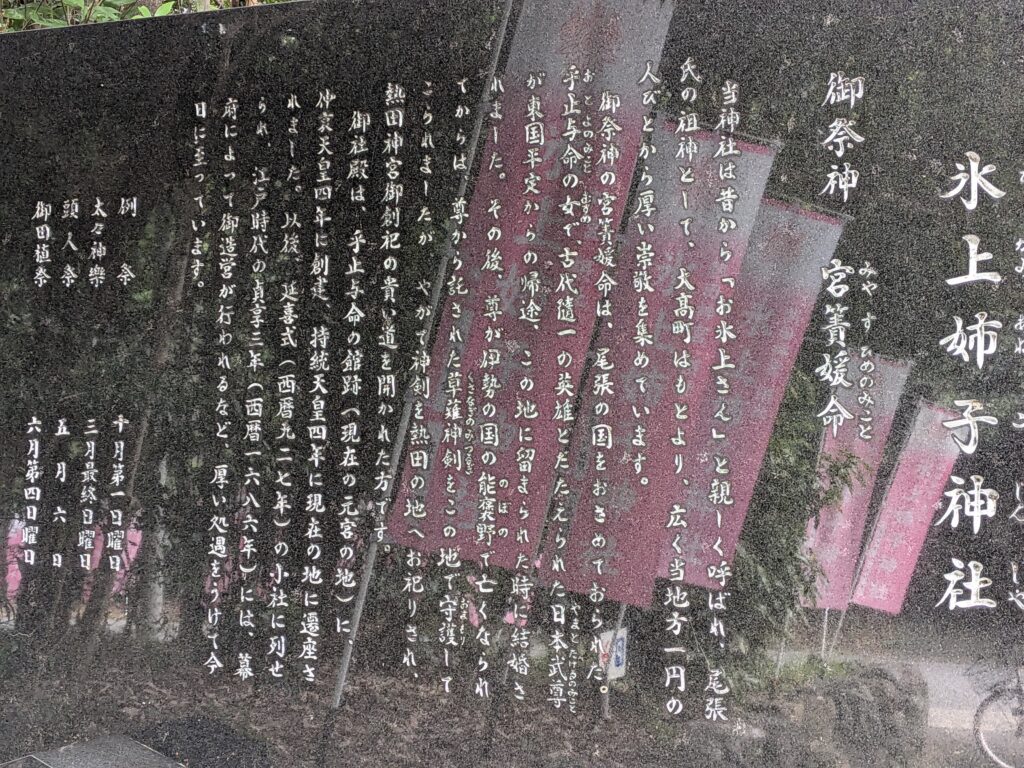 氷上姉子神社
御祭神 宮簀媛命
みやすひめのみこと
当神社は昔から「お氷上さん」と親しく呼ばれ、尾張
氏の祖神として、大高町はもとより、広く当地方一円の
人びとから厚い崇敬を集めています。
御祭神の宮簀媛命は、尾張の国をおさめておられた
おとよのみこと むすめ
乎止与命の女で、古代随一の英雄とたたえられた日本武尊
やまとたけるのみこと
が東国平定からの帰途、この地に留まられた時に結婚さ
れました。その後、尊が伊勢の国の能褒野で亡くなられ
のぼの
てからは、尊から託された草薙神剣をこの地で守護して
くさなぎのみつるぎ
おまもり
こられましたが、やがて神剣を熱田の地へお祀りされ、
熱田神宮御創祀の貴い道を開かれた方です。
御社殿は、乎止与命の館跡(現在の元宮の地)に、
仲哀天皇四年に創建、持統天皇四年に現在の地に遷座さ
れました。以後、延喜式(西暦九二七年)の小社に列せ
られ、江戸時代の貞享三年(西暦一六八六年)には、幕
府によって御造営が行われるなど、厚い処遇をうけて今
日に至っています。
例祭 十月第一日曜日
太々神楽 三月最終日曜日
頭人祭 五月六日
御田植祭 六月第四日曜日